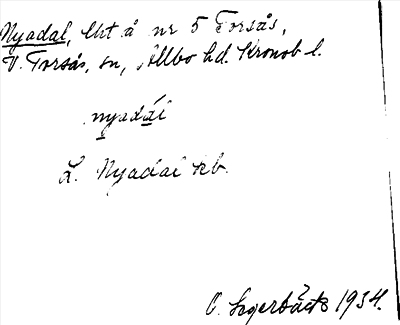 Nyadal, lht å nr 5 Torsås,
V. Torsås, sn, Allbo hd. Kronob l.
nyadál
L. Nyadal kb.
O. Segerbäck 1934.